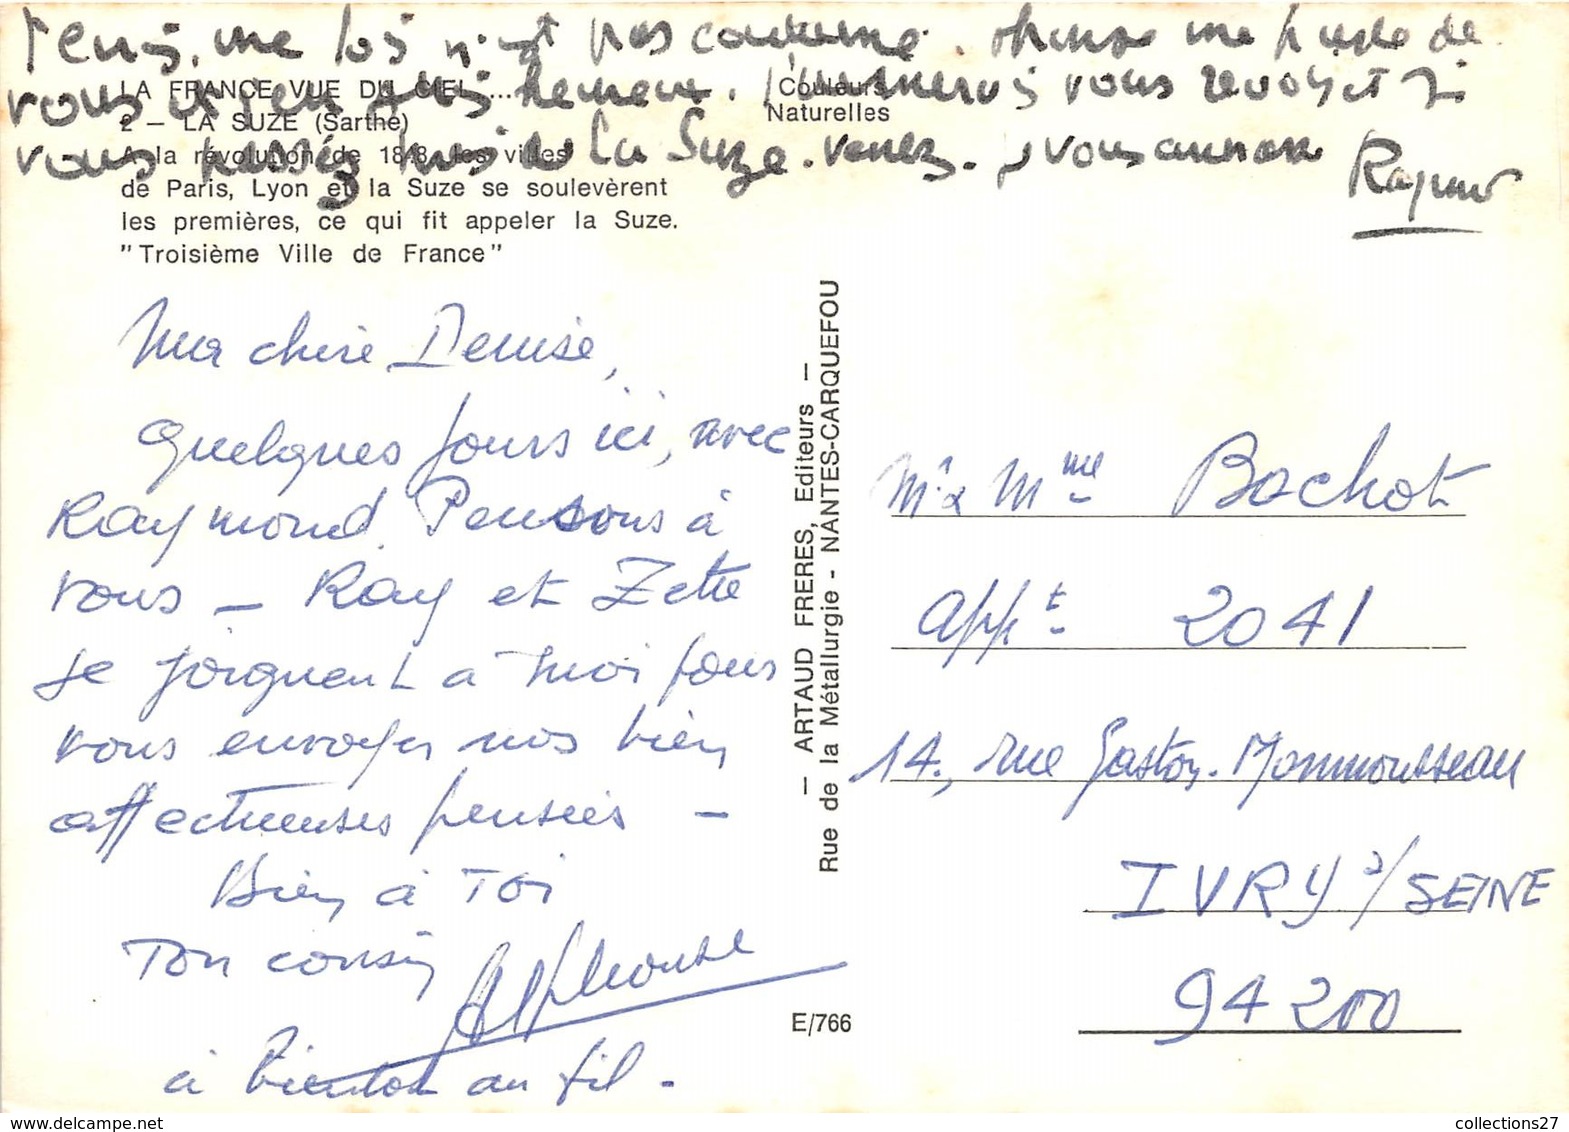 Tenis, une fois n'est pas coutume. Je me hâte de
vous
vous La Suze. venez. Raymond
LA FRANCE VUE DU CIEL ...
Couleurs
Naturelles
2 — LA SUZE (Sarthe)
A la révolution de 1848, les villes
de Paris, Lyon et la Suze se soulevèrent
les premières, ce qui fit appeler la Suze.
"Troisième Ville de France"
Ma chère Denise,
Quelques jours ici, avec
Raymond. Pensons à
vous — Ray et Zette
se joignent à moi pour
vous envoyer nos bien
affectueuses pensées —
Bien à Toi
Ton cousin Alphonse
à bientôt au fil.
— ARTAUD FRERES, Editeurs —
Rue de la Métallurgie - NANTES-CARQUEFOU
E/766
Mr & Mme Bachot
appt. 2041
14, rue Gaston. Monmousseau
IVRY s/ SEINE
94200
www.delcampe.net
collections27